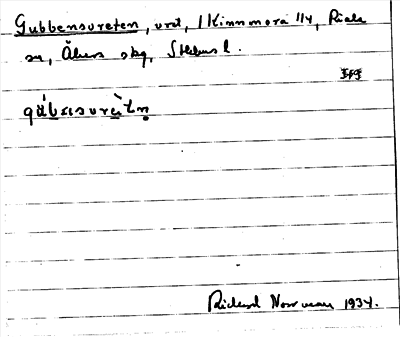 Gubbensvreten, vret, 1 Kinnmora 1/4, Riala
sn, Åkers skg, Sthlms l.
gúb:ɛsvrèt.n
Rickard Norrman 1934.